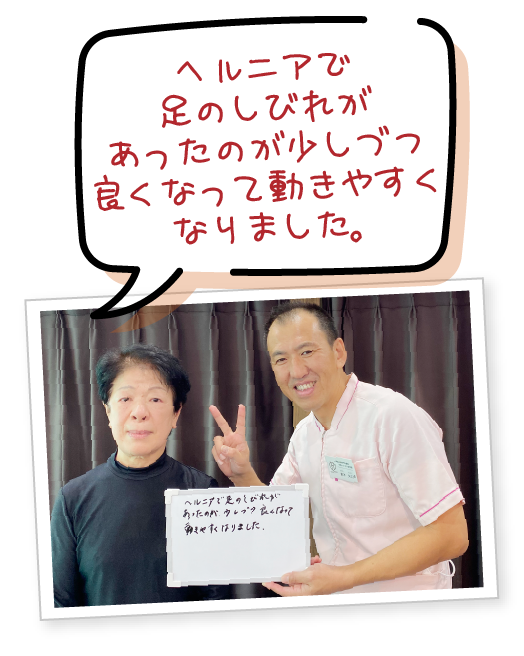 ヘルニアで
足のしびれが
あったのが少しづつ
良くなって動きやすく
なりました。
ヘルニアで足のしびれが
あったのが、少しづつ良くなって
動きやすくなりました。